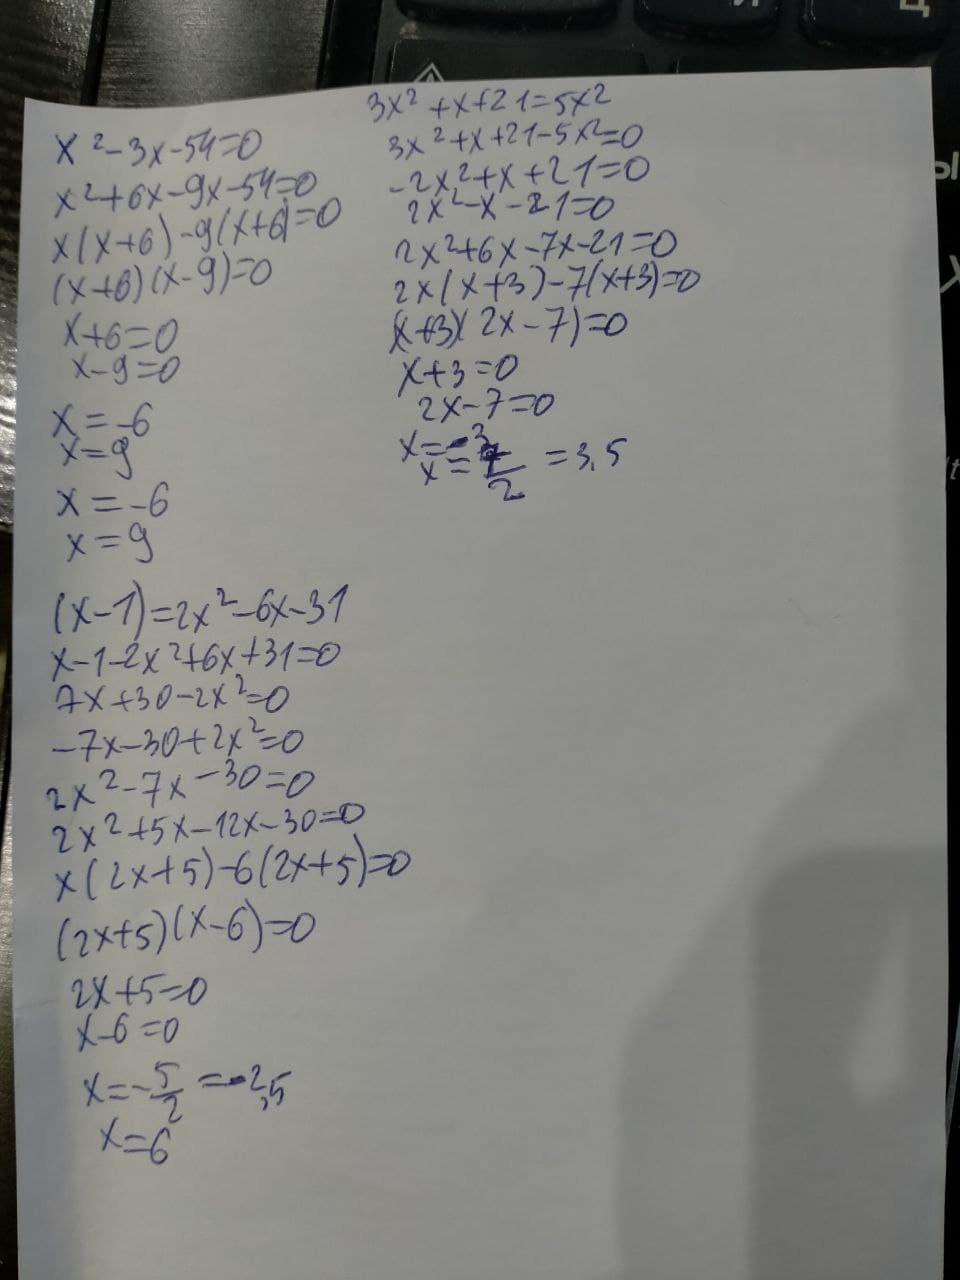 x²-3x-54=0
x²+6x-9x-54=0
x(x+6)-9(x+6)=0
(x+6)(x-9)=0
x+6=0
x-9=0
x=-6
x=9
x=-6
x=9
(x-1)=2x²-6x-31
x-1-2x²+6x+31=0
7x+30-2x²=0
-7x-30+2x²=0
2x²-7x-30=0
2x²+5x-12x-30=0
x(2x+5)-6(2x+5)=0
(2x+5)(x-6)=0
2x+5=0
x-6=0
x=-5/2=-2,5
x=6
3x²+x+21=5x²
3x²+x+21-5x²=0
-2x²+x+21=0
2x²-x-21=0
2x²+6x-7x-21=0
2x(x+3)-7(x+3)=0
(x+3)(2x-7)=0
x+3=0
2x-7=0
x=-3
x=7/2=3,5
Ц
Ы